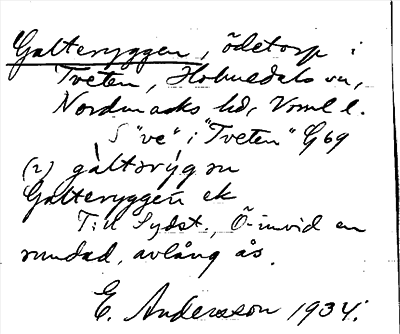 Galteryggen, ödetorp i
Tveten, Holmedals sn,
Nordmarks hd, Vrml l.
S "ve" i "Tveten" G69
(2) galtərygən
Galteryggen ek
Till Sydst., Ö-invid en
rundad, avlång ås.
E. Andersson 1934.